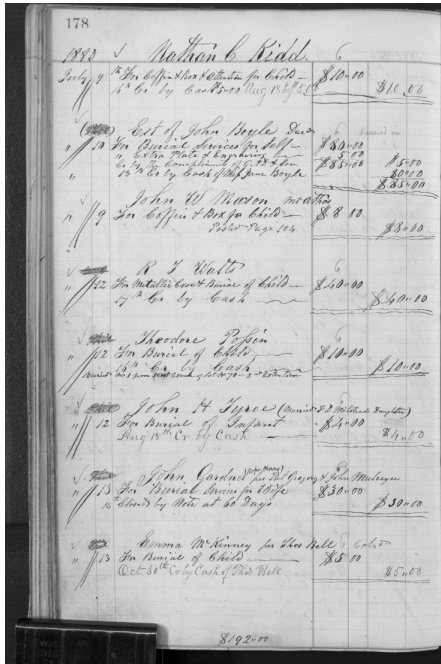 178
1883 Nathan C Kidd 6
July 9th For Coffin & Box & Attention for Child $10.00
16th Cr by Cash $5.00 Aug $10.00
Est of John Boyle Decd
" 10 For Burial Services for Self $80.00
" Extra Plate & Engraving 5.00
Cr by $85.00 $5.00
13th Cr by Cash of Mrs Jane Boyle 80.00
$85.00
John W Mason
" 9 For Coffin & Box for Child $8.00
Posted Page 104 $8.00
R T Watts 6
" 12 For Metallic Case & Burial of Child $40.00
17th Cr by Cash $40.00
Theodore Possin 6
" 12 For Burial of Child $10.00
16th Cr by Cash $10.00
Buried
John H Tyree (Married Daughter)
" 12 For Burial of Infant $4.00
Aug 18th Cr by Cash $4.00
John Gardner (Wife Mary) per Pat Gregory & John
" 13 For Burial Services for Wife $30.00
14th Closed by Note at 60 Days $30.00
Emma McKinney per Thos Bell Cold
" 13 For Burial of Child $5.00
Oct 30th Cr by Cash of Thos Bell $5.00
$192.00